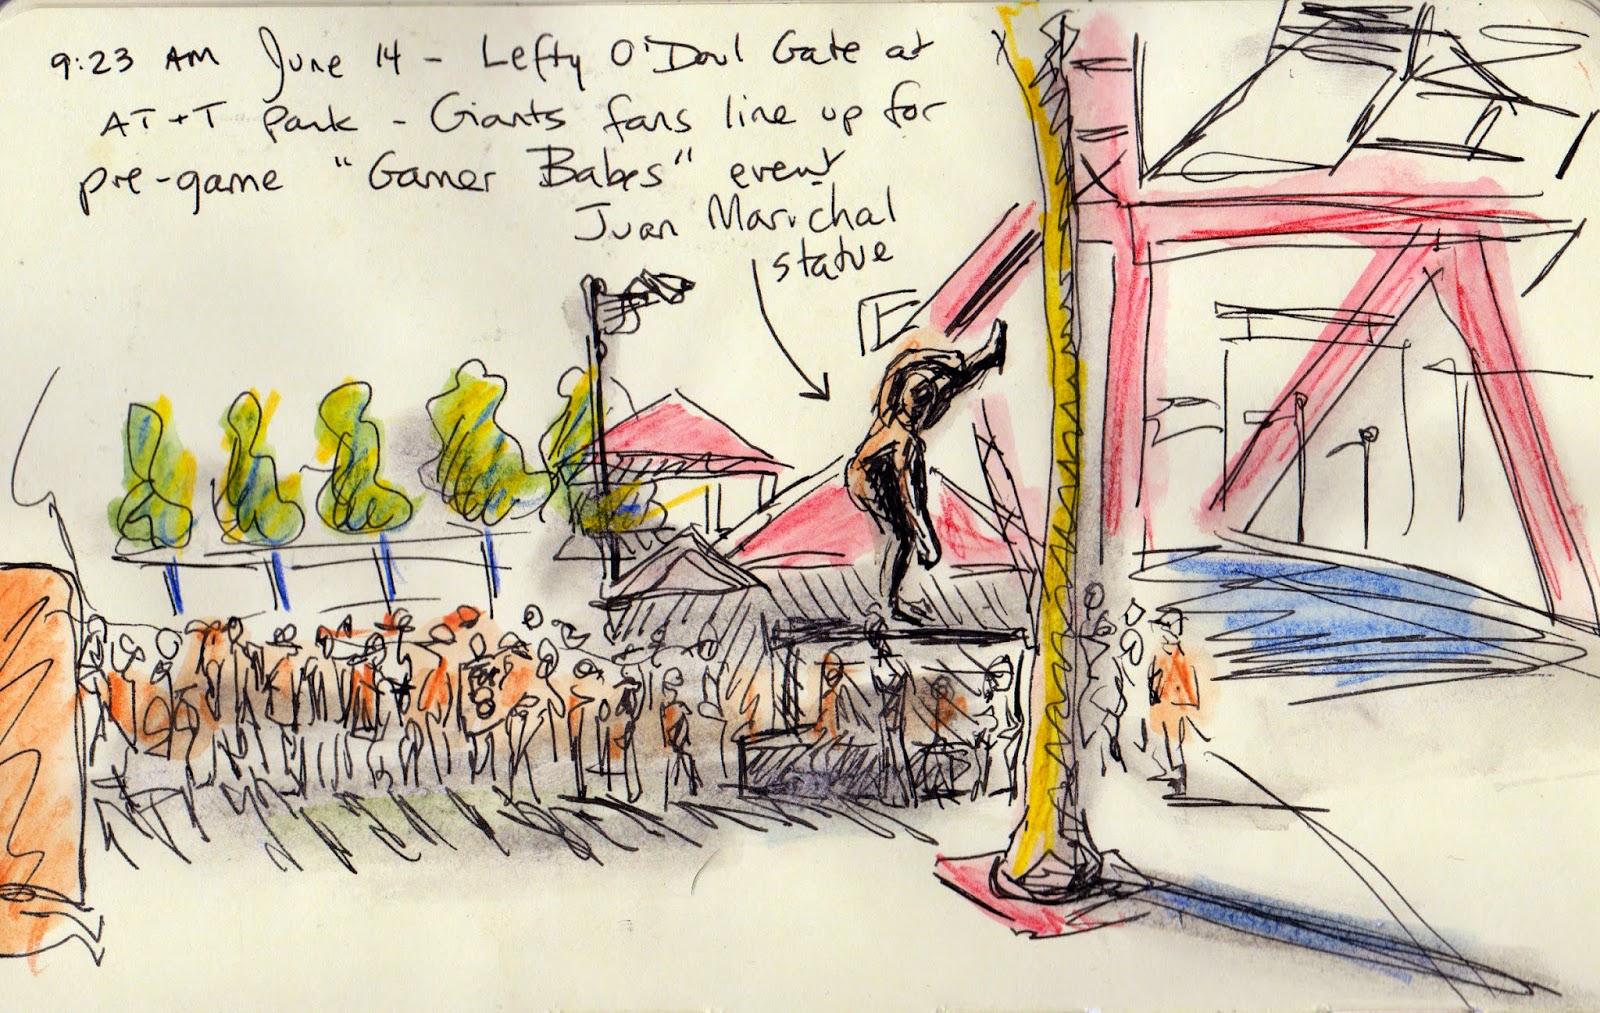 9:23 AM June 14 - Lefty O'Doul Gate at
AT+T Park - Giants fans line up for
pre-game "Gamer Babes" event
Juan Marichal
statue